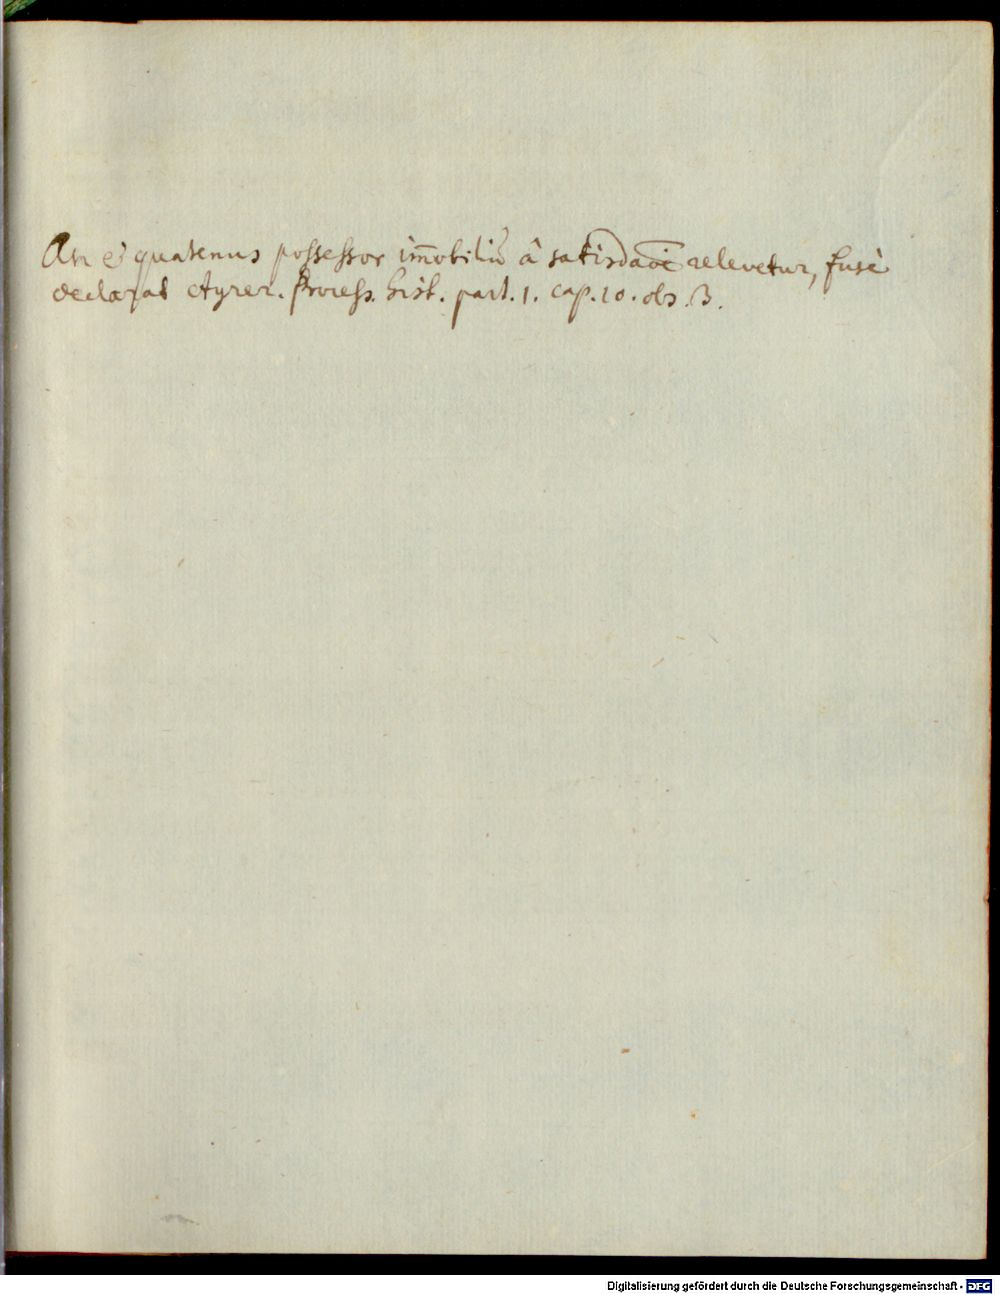 An & quatenus possessor im̄obiliū â satisdaōe relevetur, fusè
declarat Ayrer. Process. hist. part. 1. cap. 10. obs. 3.
Digitalisierung gefördert durch die Deutsche Forschungsgemeinschaft - DFG